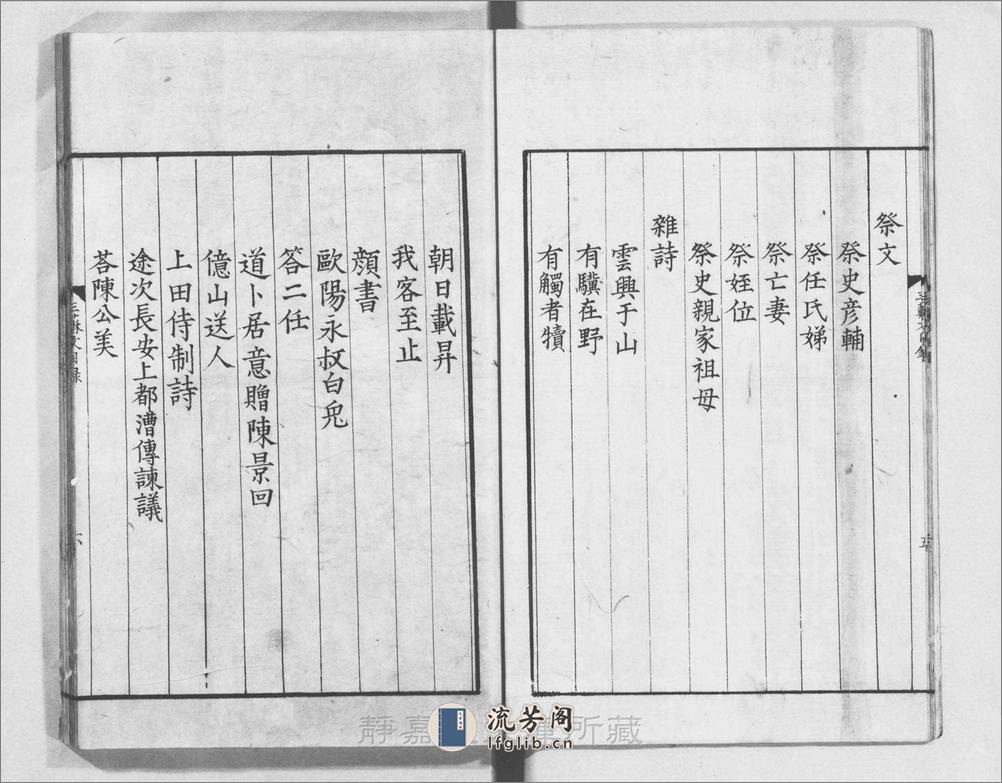 祭文
祭史彦輔
祭任氏娣
祭亡妻
祭姪位
祭史親家祖母
雜詩
雲興于山
有驥在野
有觸者犢
朝日載昇
我客至止
顔書
歐陽永叔白兎
答二任
道卜居意贈陳景回
億山送人
上田侍制詩
途次長安上都漕傳諫議
荅陳公美
五
六
靜嘉
所藏
流芳阁
lfglib.cn